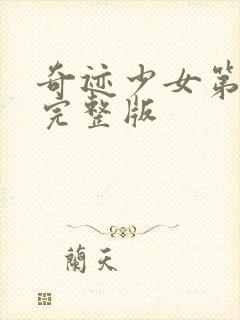 奇迹少女第
完整版
蘭天